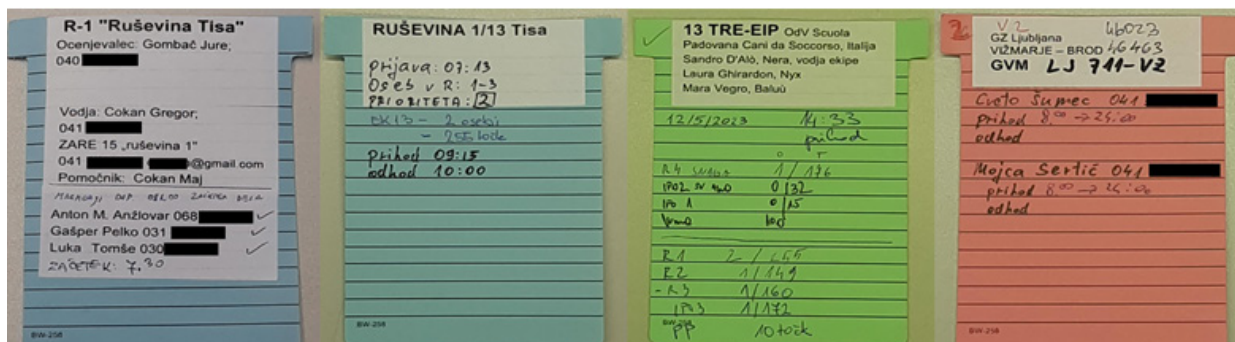 R-1 "Ruševina Tisa"
Ocenjevalec: Gombač Jure;
040
Vodja: Cokan Gregor;
041
ZARE 15 „ruševina 1"
041 @gmail.com
Pomočnik: Cokan Maj
Anton M. Anžlovar 068
Gašper Pelko 031
Luka Tomše 030
ZAČETEK: 7.30
BW-258
RUŠEVINA 1/13 Tisa
prijava: 07:13
Oseb v R: 1-3
PRIORITETA: 2
EK13 - 2 osebi
- 255 točk
prihod 09:15
odhod 10:00
BW-258
13 TRE-EIP OdV Scuola
Padovana Cani da Soccorso, Italija
Sandro D'Alò, Nera, vodja ekipe
Laura Ghirardon, Nyx
Mara Vegro, Baluù
12/5/2023 14:33
prihod
O T
R4 1/176
0/32
IPO 1 0/15
R1 2/255
R2 1/149
- R3 1/160
IPO3 1/172
BW-258
PP 10 točk
V2 46023
GZ Ljubljana
VIŽMARJE – BROD 46463
GVM LJ 711-V2
Cveto Šumec 041
prihod 8.00 -> 24:00
odhod
Mojca Sertić 041
prihod 8.00 -> 24:00
odhod
BW-258